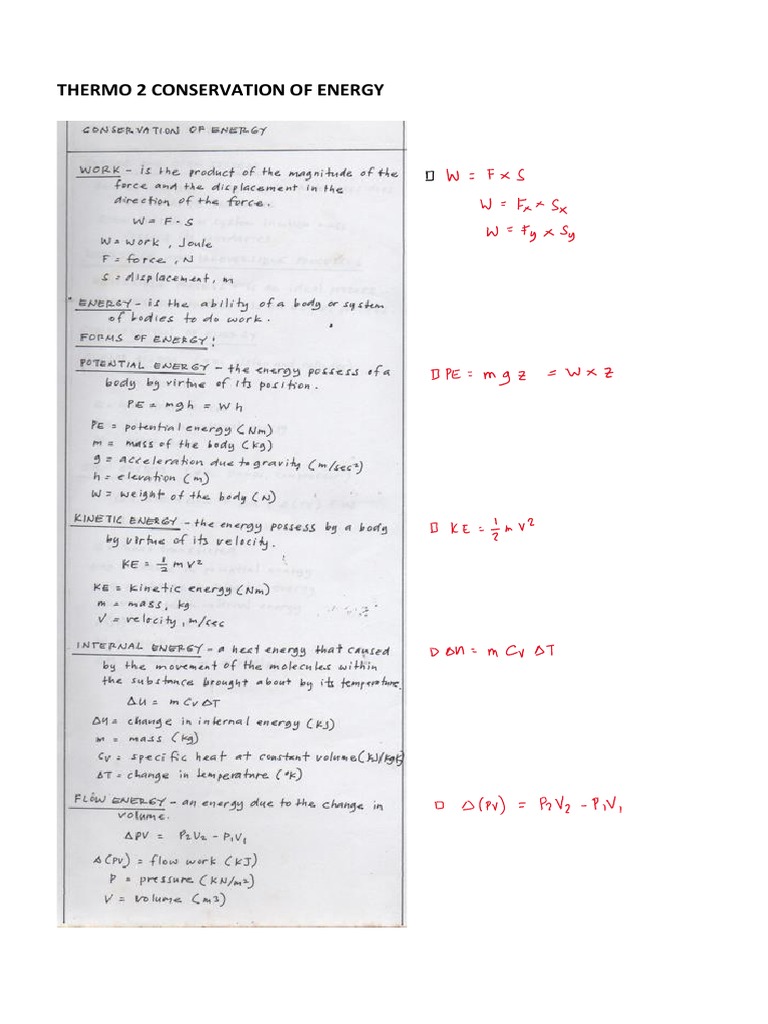 THERMO 2 CONSERVATION OF ENERGY
CONSERVATION OF ENERGY
WORK – is the product of the magnitude of the
force and the displacement in the
direction of the force.
W = F · S
W = work , Joule
F = force , N
S = displacement, m
ENERGY – is the ability of a body or system
of bodies to do work.
FORMS OF ENERGY:
POTENTIAL ENERGY – the energy possess of a
body by virtue of its position.
PE = mgh = Wh
PE = potential energy (Nm)
m = mass of the body (kg)
g = acceleration due to gravity (m/sec²)
h = elevation (m)
W = weight of the body (N)
KINETIC ENERGY – the energy possess by a body
by virtue of its velocity.
KE = ½ m V²
KE = kinetic energy (Nm)
m = mass, kg
V = velocity, m/sec
INTERNAL ENERGY – a heat energy that caused
by the movement of the molecules within
the substance brought about by its temperature.
ΔU = m Cv ΔT
ΔU = change in internal energy (KJ)
m = mass (kg)
Cv = specific heat at constant volume (KJ/kgK)
ΔT = change in temperature (°K)
FLOW ENERGY – an energy due to the change in
volume.
ΔPV = P₂V₂ – P₁V₁
Δ(PV) = flow work (KJ)
P = pressure (KN/m²)
V = volume (m³)
W = F × S
W = Fx × Sx
W = Fy × Sy
PE = m g z = W × z
KE = ½ m V²
ΔU = m Cv ΔT
Δ(PV) = P₂V₂ – P₁V₁